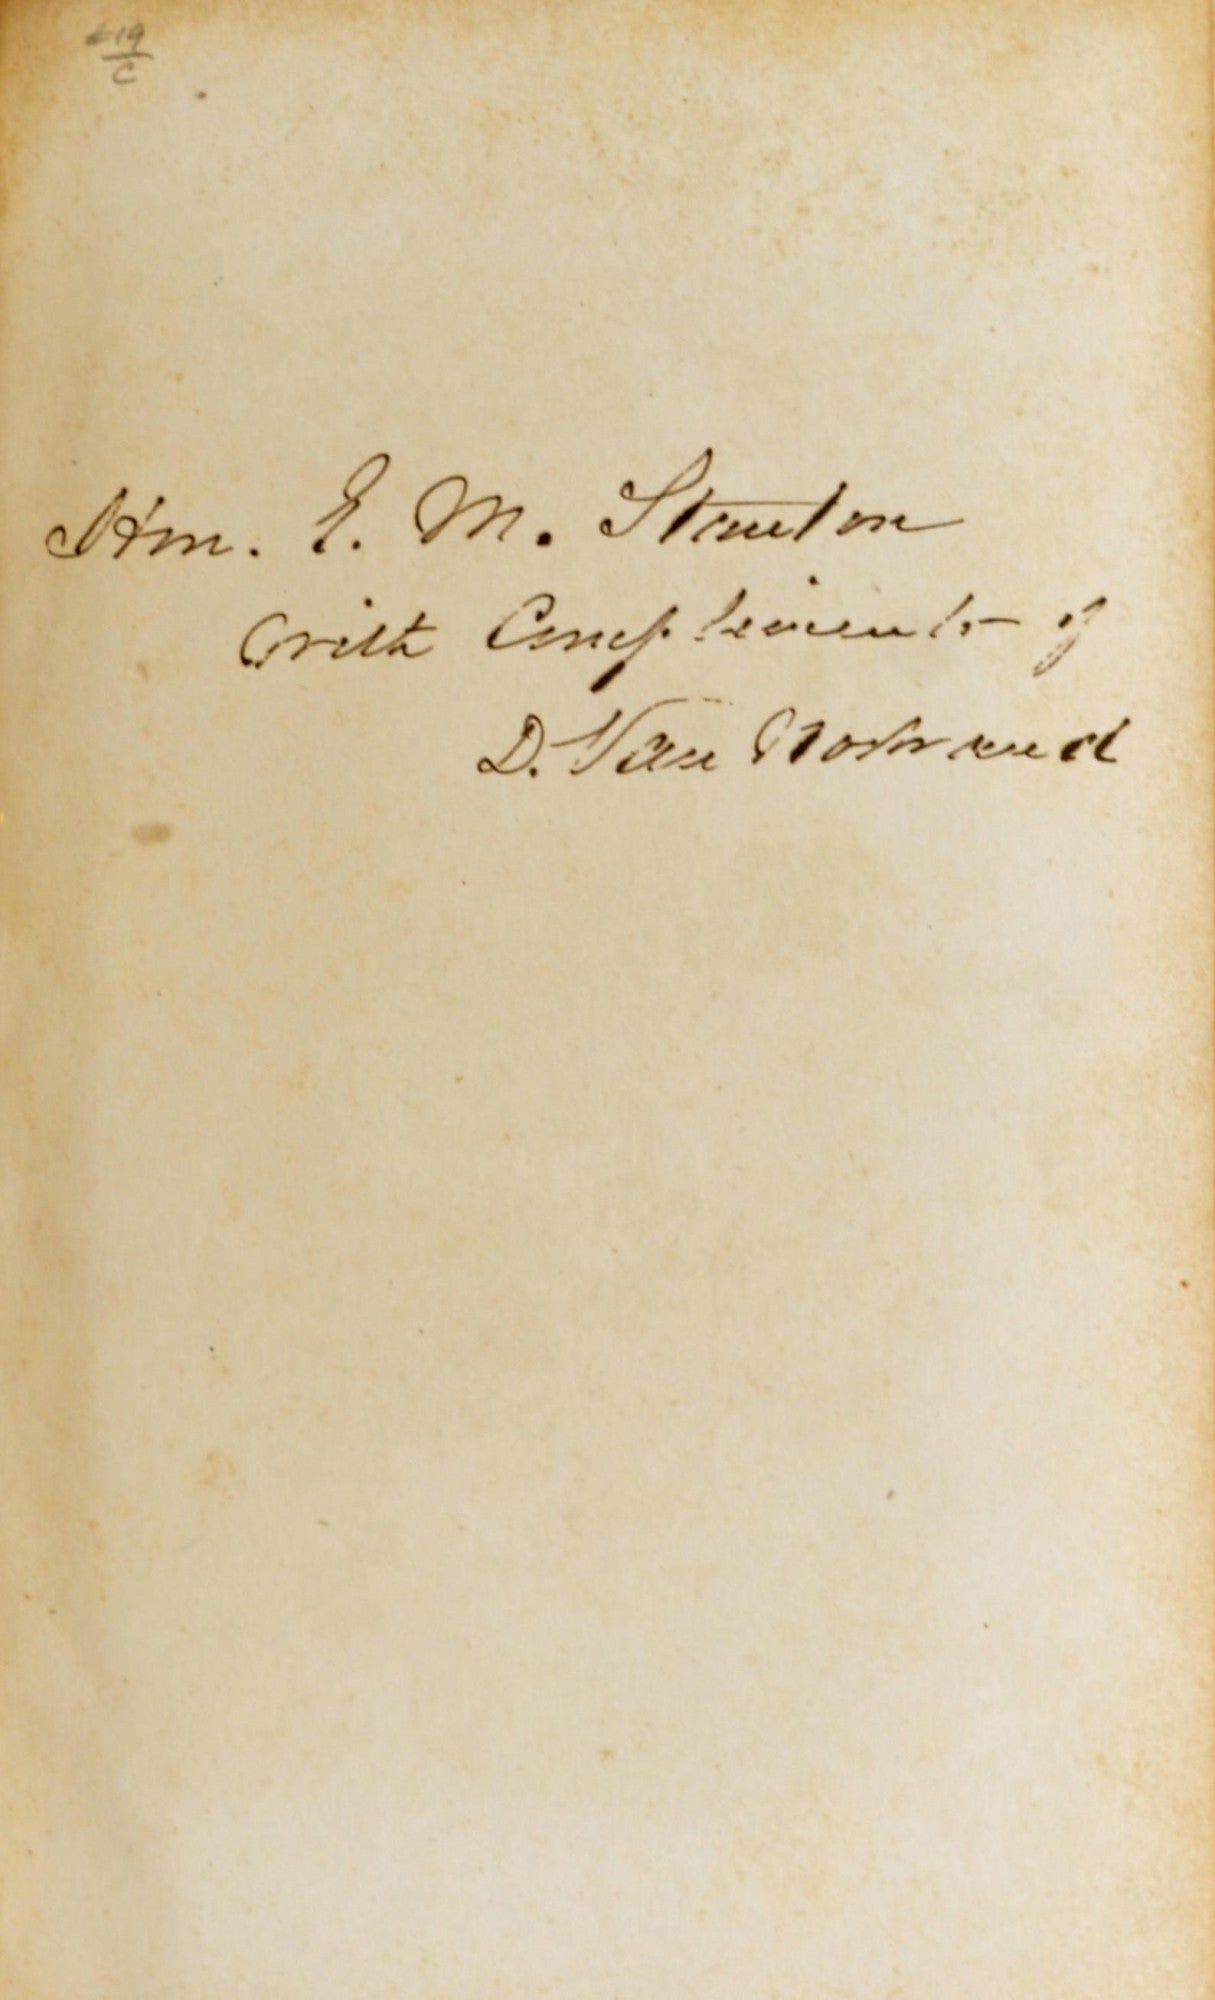 19
C
Hon. E. M. Stanton
With Compliments of
D. Van Nostrand